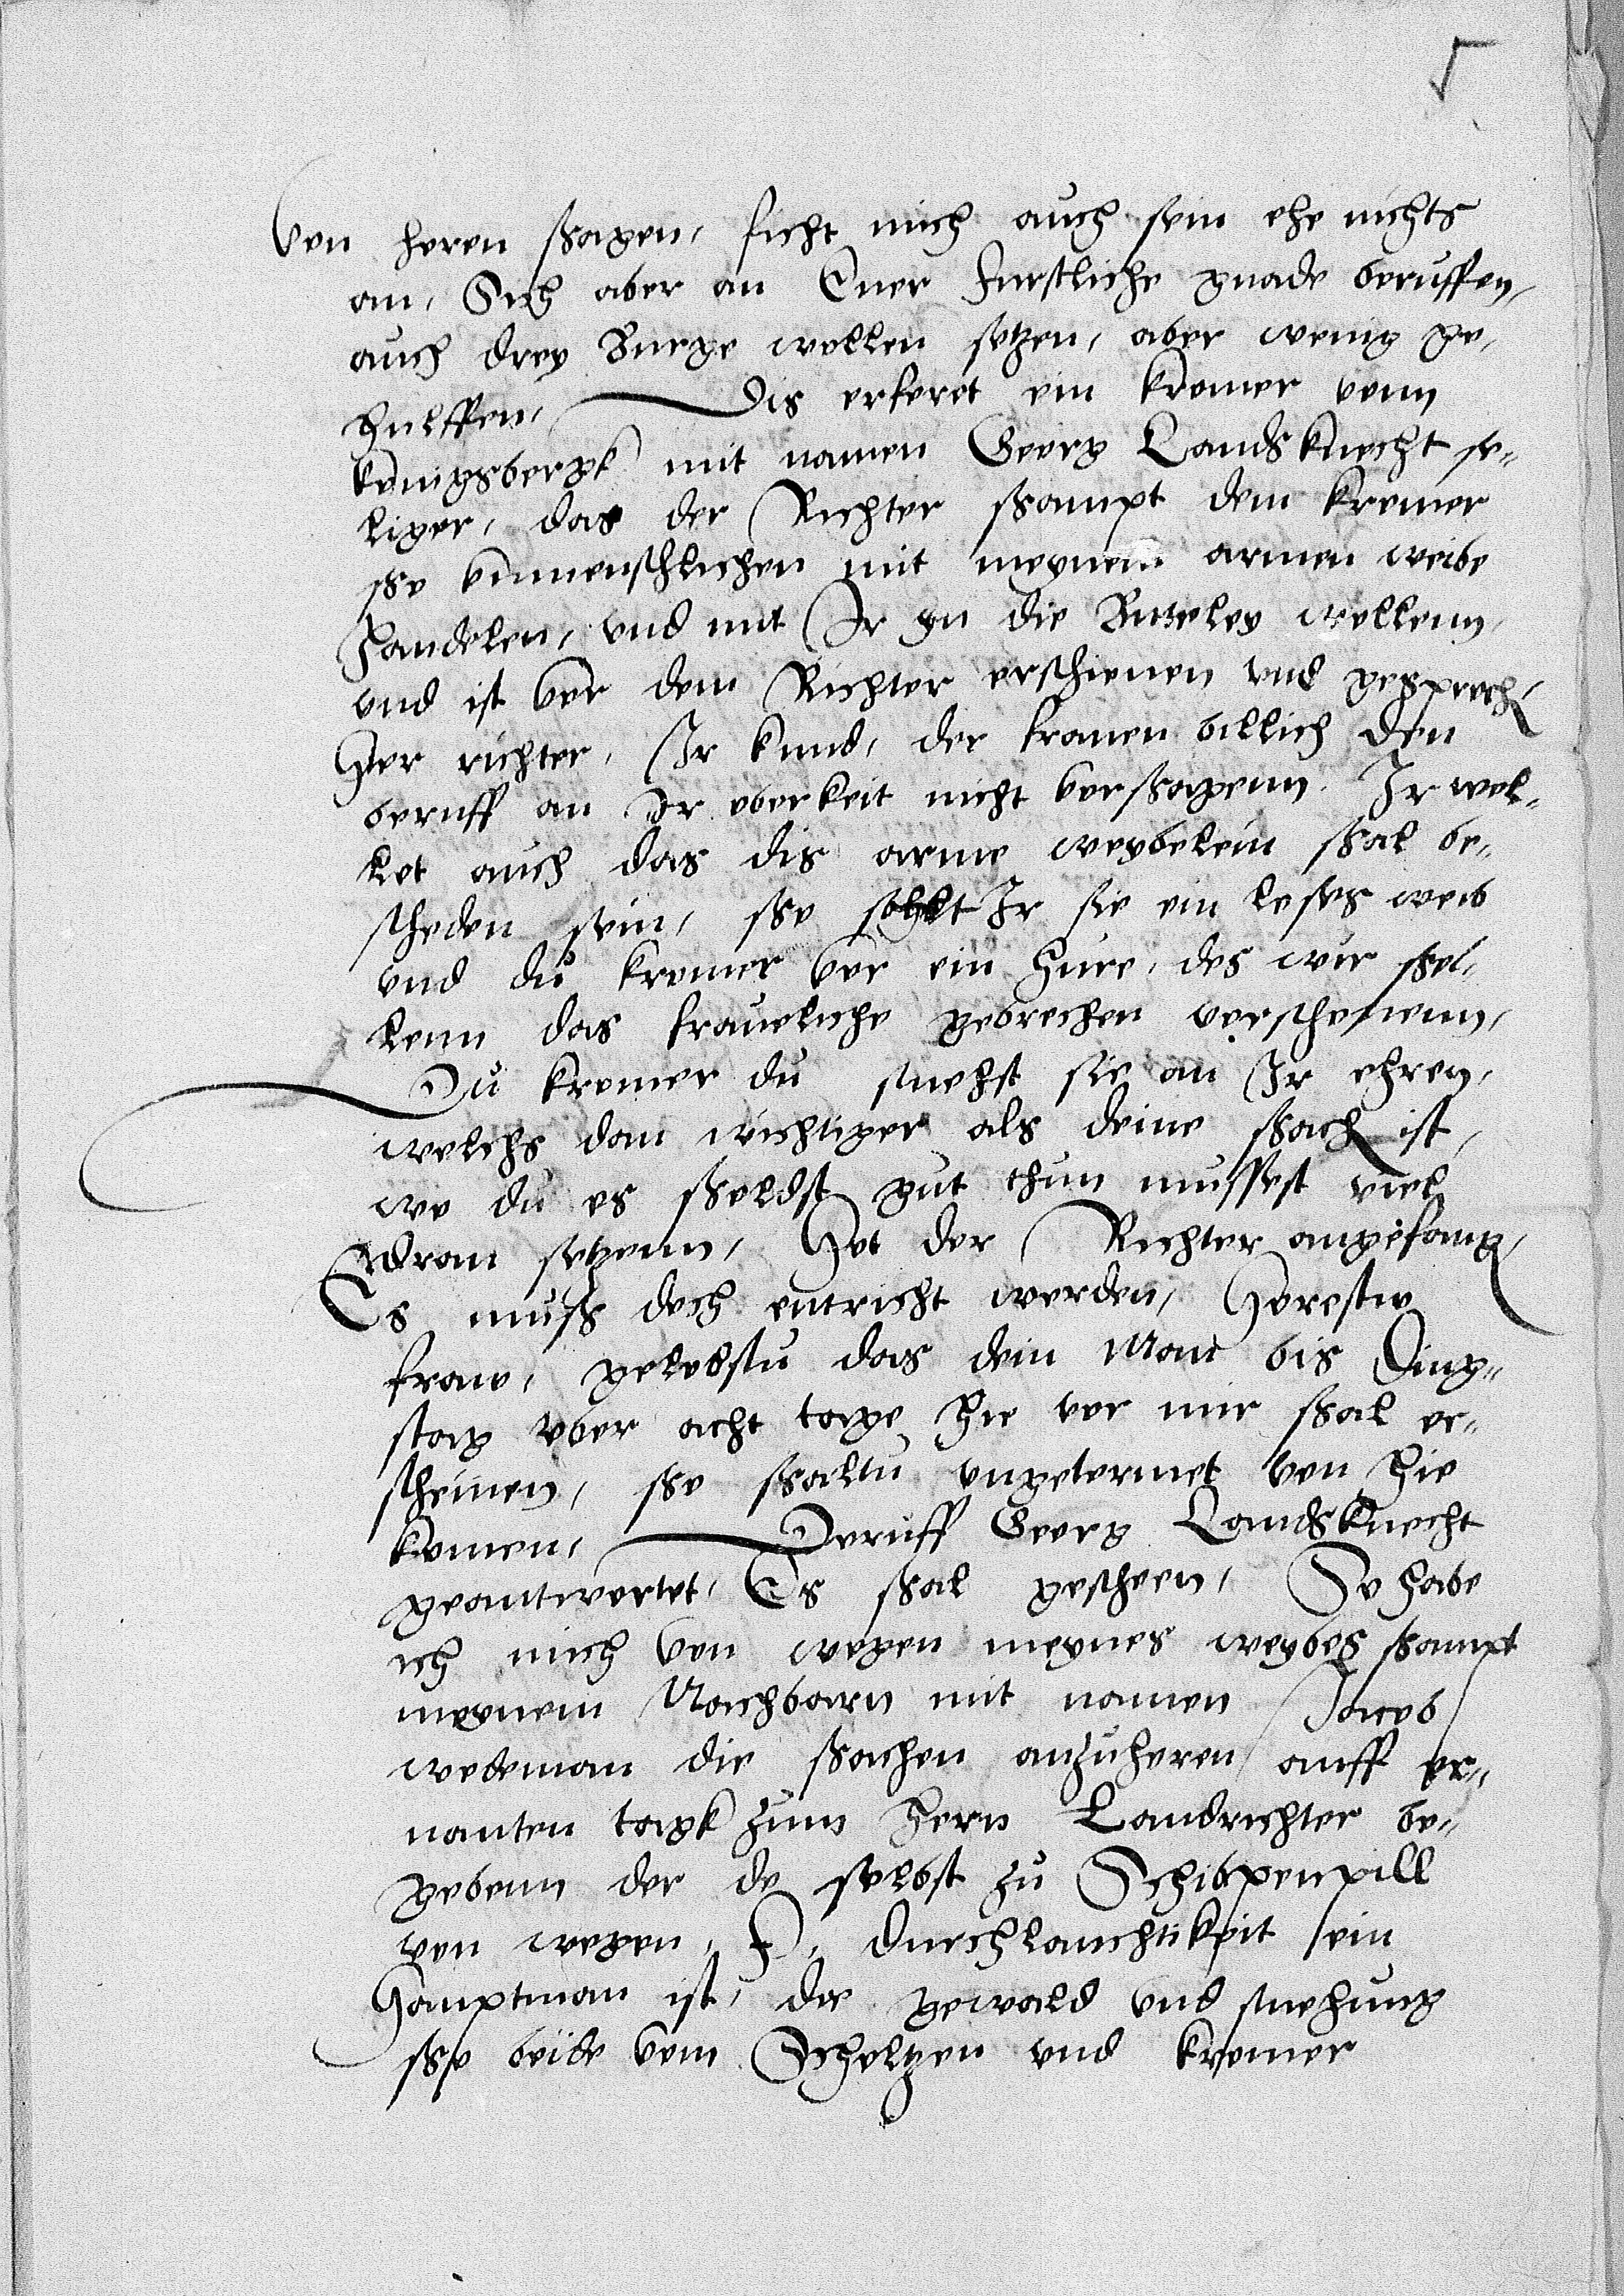 von heren ssagen, ficht mich auch sein ehe nichts
an, Sich aber an Euer Furstliche gnade beruffen,
auch drey Burge wollen setzen, aber wenig ge,
hulffen, Dis erferet ein kromer vonn
konigsbergk mit namen Georg Landsknecht se„
liger, das der Richter ssampt dem kremer
sso vnmenschlichen mit meynem armen weibe
handelen, vnd mit Ir yn die Buteley wollenn,
vnd ist vor dem Richter erschienen vnd gesproch,
Her richter, Ir kund, der frauen billich den
beruff an Ir oberkeit nicht verssagenn. Ir wol„
let auch das dis arme weybelein ssal be„
scheden sein, sso Ir sie ein loses weib
vnd du kromer vor ein hure, des wir ssol„
lenn das frauliche gebrechen verschonenn,
Du kromer du suchst sie an Ir ehren,
welchs dan wichtiger als deine ssach ist,
wo du es sseldst gut thun mussest viel
dran setzenn, Hot der Richter angefang,
Es muss doch entricht werden, Horestw
fraw, gelobstu das dein Man bis Ding„
stag vber acht tage hie vor mir ssal er„
scheinen, sso ssaltu vngetormet von hie
komen, Doruff Georg Landsknecht
geantwortet, Es ssal gescheen, So habe
ich mich von wegen meynes weybes ssampt
meynem Nachbarn mit namen Jacob
wedeman die ssachen anzuhoren auff er„
nanten tagk zum hern Landrichter be„
gebenn der do selbst zu Schippenpill
von wegen, F, durchlauchtikeit sein
Hauptman ist, die gewald vnd suchung
sso beide vom Scholtzen vnd kromer